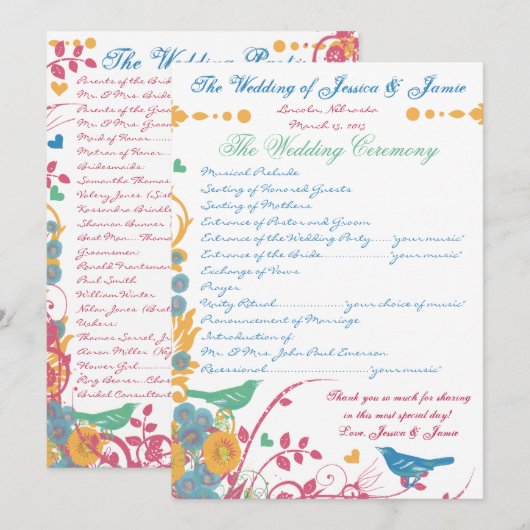 The Wedding Party
Parents of the Bride
Mr. & Mrs. Bride
Parents of the Groom
Mr. & Mrs. Groom
Maid of Honor
Matron of Honor
Bridesmaids:
Samantha Thomas
Valery Jones (Sis
Kassandra Brinkle
Shannon Bunner
Best Man....Thoma
Groomsmen:
Ronald Frantsman
Paul Smith
William Winter
Nolan Jones (Brot
Ushers:
Thomas Sorrel, Jr
Aaron Miller (Ne
Flower Girl
Ring Bearer...Chas
Bridal Consultant
The Wedding of Jessica & Jamie
Lincoln, Nebraska
March 15, 2015
The Wedding Ceremony
Musical Prelude
Seating of Honored Guests
Seating of Mothers
Entrance of Pastor and Groom
Entrance of the Wedding Party......"your music"
Entrance of the Bride.................."your music"
Exchange of Vows
Prayer
Unity Ritual............................"your choice of music"
Pronouncement of Marriage
Introduction of:
Mr. & Mrs. John Paul Emerson
Recessional............................"your music"
Thank you so much for sharing
in this most special day!
Love, Jessica & Jamie